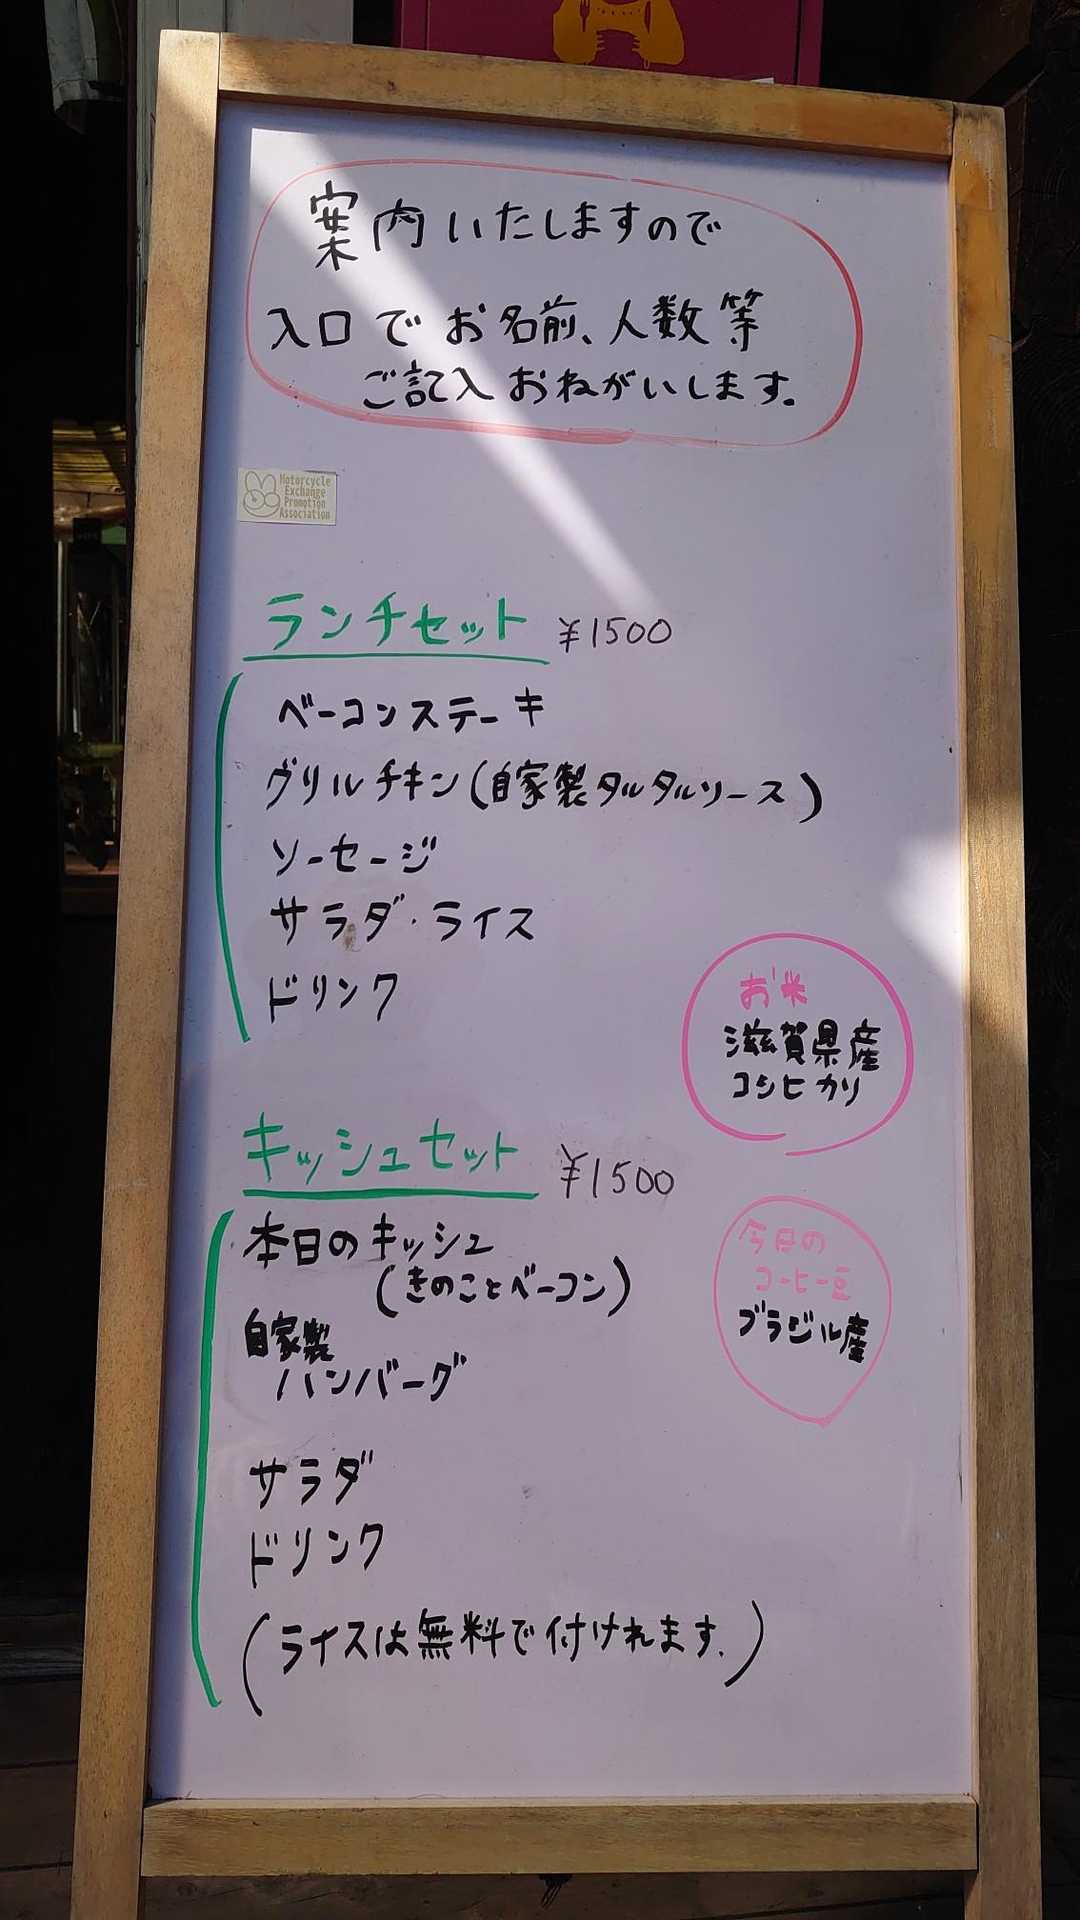 案内いたしますので
入口でお名前、人数等
ご記入おねがいします。
Motorcycle
Exchange
Promotion
Association
ランチセット ¥1500
ベーコンステーキ
グリルチキン(自家製タルタルソース)
ソーセージ
サラダ・ライス
ドリンク
お米
滋賀県産
コシヒカリ
キッシュセット ¥1500
本日のキッシュ
(きのことベーコン)
自家製
ハンバーグ
サラダ
ドリンク
(ライスは無料で付けれます.)
今日の
コーヒー豆
ブラジル産